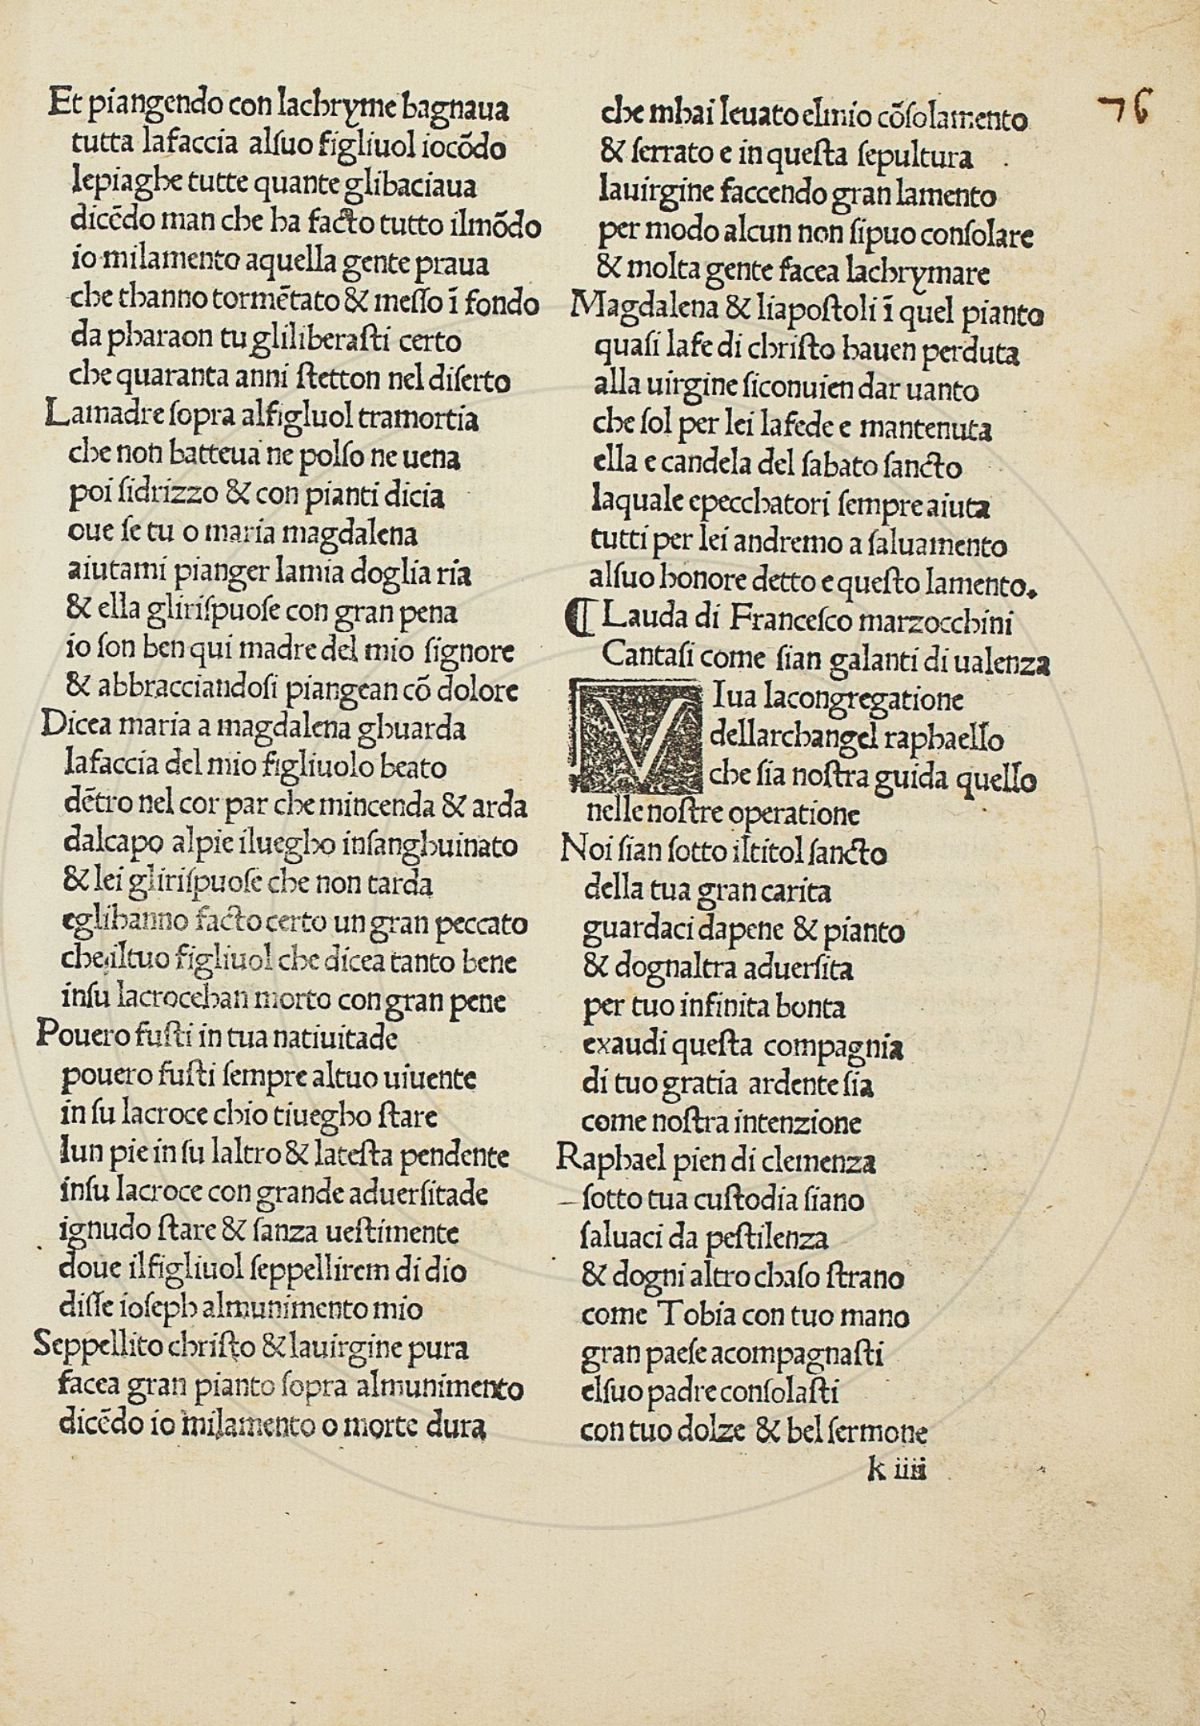 Et piangendo con lachryme bagnaua
tutta lafaccia alsuo figliuol iocõdo
lepiaghe tutte quante glibaciaua
dicẽdo man che ha facto tutto ilmõdo
io milamento aquella gente praua
che thanno tormẽtato & messo ĩ fondo
da pharaon tu gliliberasti certo
che quaranta anni stetton nel diserto
Lamadre sopra alfigluol tramortia
che non batteua ne polso ne uena
poi sidrizzo & con pianti dicia
oue se tu o maria magdalena
aiutami pianger lamia doglia ria
& ella glirispuose con gran pena
io son ben qui madre del mio signore
& abbracciandosi piangean cõ dolore
Dicea maria a magdalena ghuarda
lafaccia del mio figliuolo beato
dẽtro nel cor par che mincenda & arda
dalcapo alpie iluegho insanghuinato
& lei glirispuose che non tarda
eglihanno facto certo un gran peccato
che iltuo figliuol che dicea tanto bene
insu lacrocehan morto con gran pene
Pouero fusti in tua natiuitade
pouero fusti sempre altuo uiuente
in su lacroce chio tiuegho stare
lun pie in su laltro & latesta pendente
insu lacroce con grande aduersitade
ignudo stare & sanza uestimente
doue ilfigliuol seppellirem di dio
disse ioseph almunimento mio
Seppellito christo & lauirgine pura
facea gran pianto sopra almunimento
dicẽdo io milamento o morte dura
76
che mhai leuato elmio cõsolamento
& serrato e in questa sepultura
lauirgine faccendo gran lamento
per modo alcun non sipuo consolare
& molta gente facea lachrymare
Magdalena & liapostoli ĩ quel pianto
quasi lafe di christo hauen perduta
alla uirgine siconuien dar uanto
che sol per lei lafede e mantenuta
ella e candela del sabato sancto
laquale epecchatori sempre aiuta
tutti per lei andremo a saluamento
alsuo honore detto e questo lamento.
¶ Lauda di Francesco marzocchini
Cantasi come sian galanti di ualenza
VIua lacongregatione
dellarchangel raphaello
che sia nostra guida quello
nelle nostre operatione
Noi sian sotto iltitol sancto
della tua gran carita
guardaci dapene & pianto
& dognaltra aduersita
per tuo infinita bonta
exaudi questa compagnia
di tuo gratia ardente sia
come nostra intenzione
Raphael pien di clemenza
sotto tua custodia siano
saluaci da pestilenza
& dogni altro chaso strano
come Tobia con tuo mano
gran paese acompagnasti
elsuo padre consolasti
con tuo dolze & bel sermone
k iiii